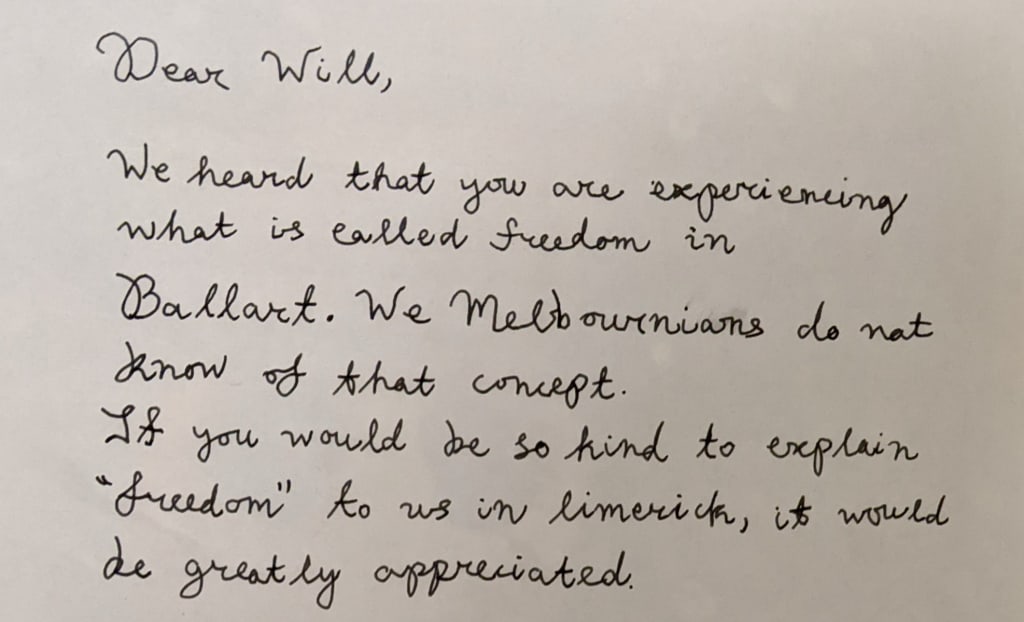 Dear Will,
We heard that you are experiencing
what is called freedom in
Ballart. We Melbournians do not
know of that concept.
If you would be so kind to explain
"freedom" to us in limerick, it would
be greatly appreciated.